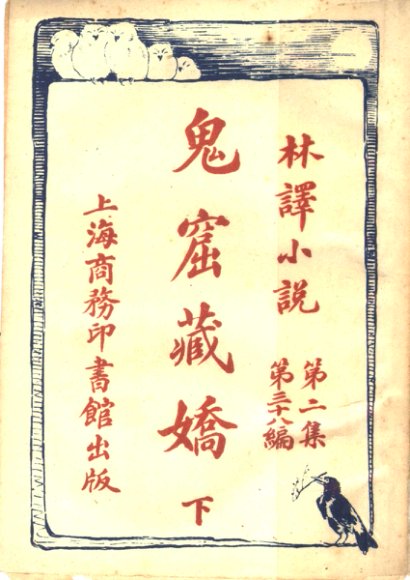 林譯小說
第二集
第三十八編
鬼窟藏嬌
下
上海商務印書館出版